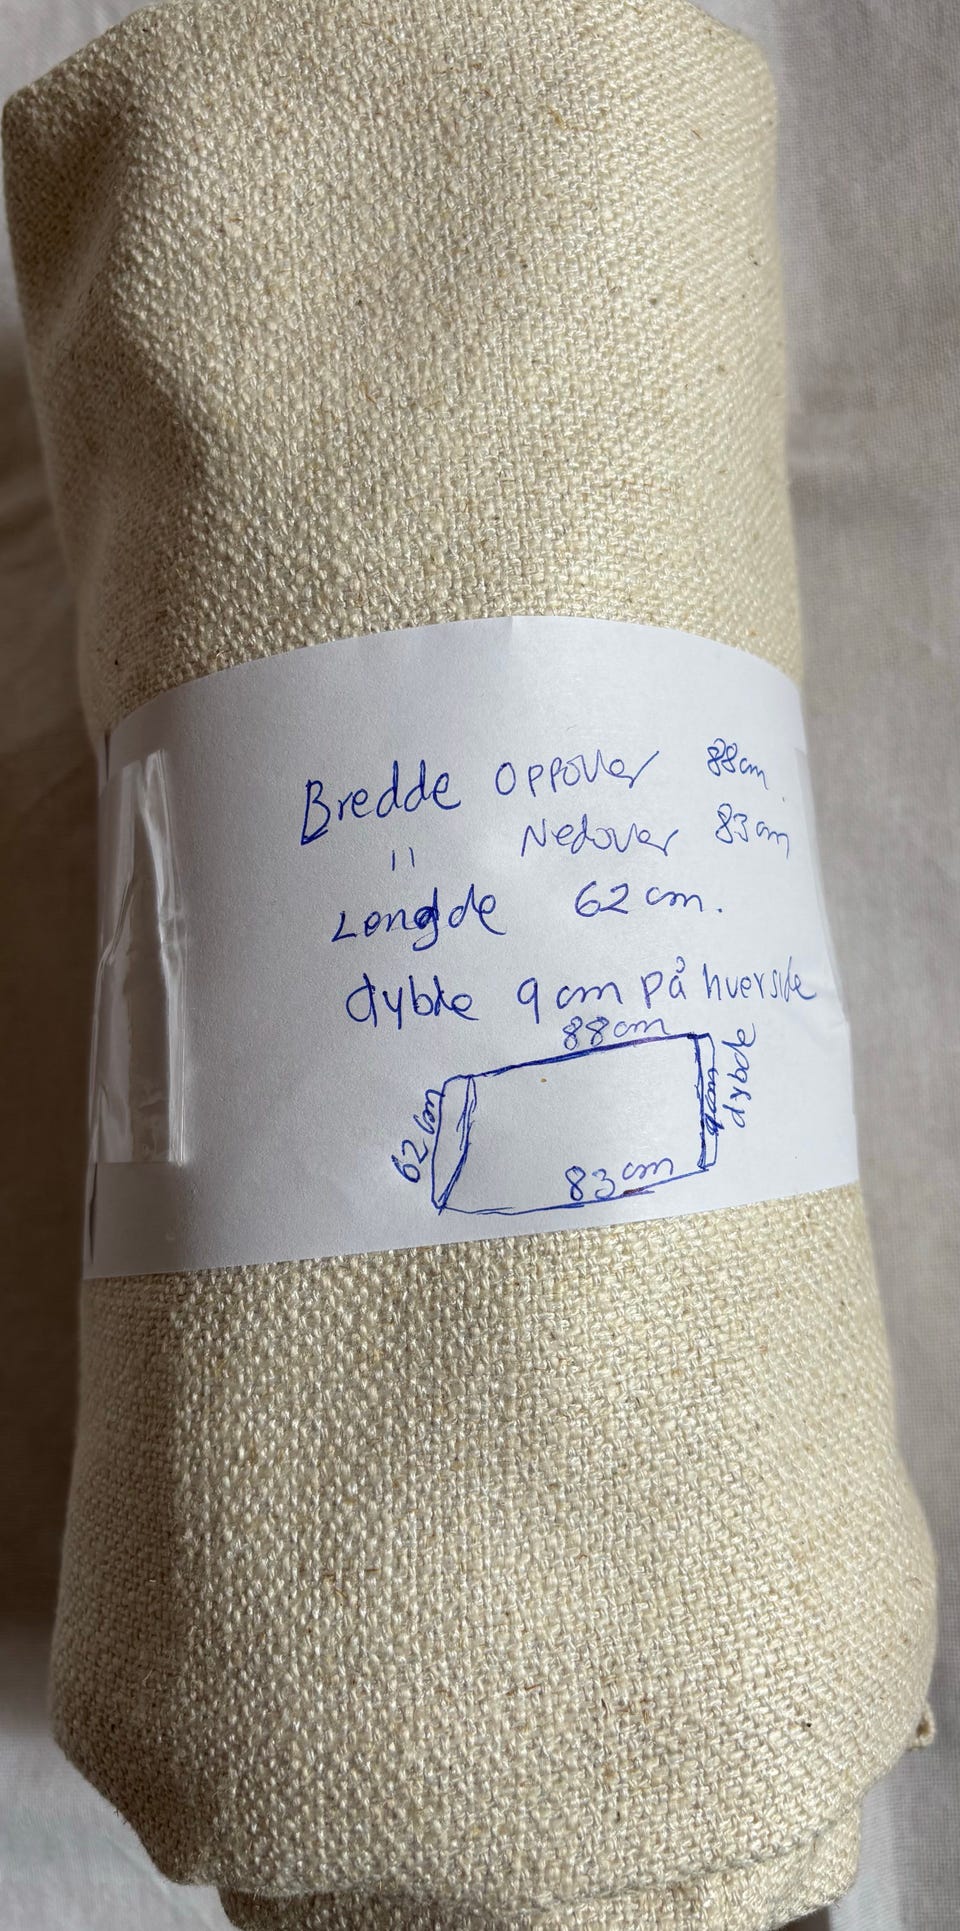 Bredde oppover 88cm
" Nedover 83cm
Lengde 62cm.
dybde 9cm på hverside
88cm
62cm
9cm
dybde
83cm